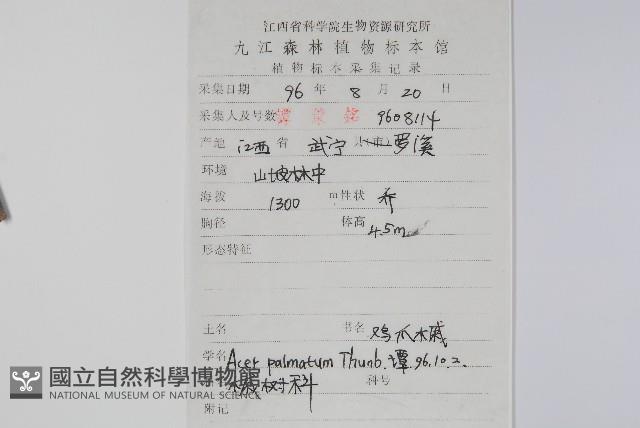 江西省科学院生物资源研究所
九江森林植物标本馆
植物标本采集记录
采集日期 96 年 8 月 20 日
采集人及号数 谭策铭 9608114
产地 江西 省 武宁 县(市) 罗溪
环境 山坡林中
海拔 1300 m 性状 乔
胸径 体高 4.5m
形态特征
土名 书名 鸡爪槭
学名 Acer palmatum Thunb. 谭. 96.10.2.
槭树科 科号
附记
國立自然科學博物館
NATIONAL MUSEUM OF NATURAL SCIENCE